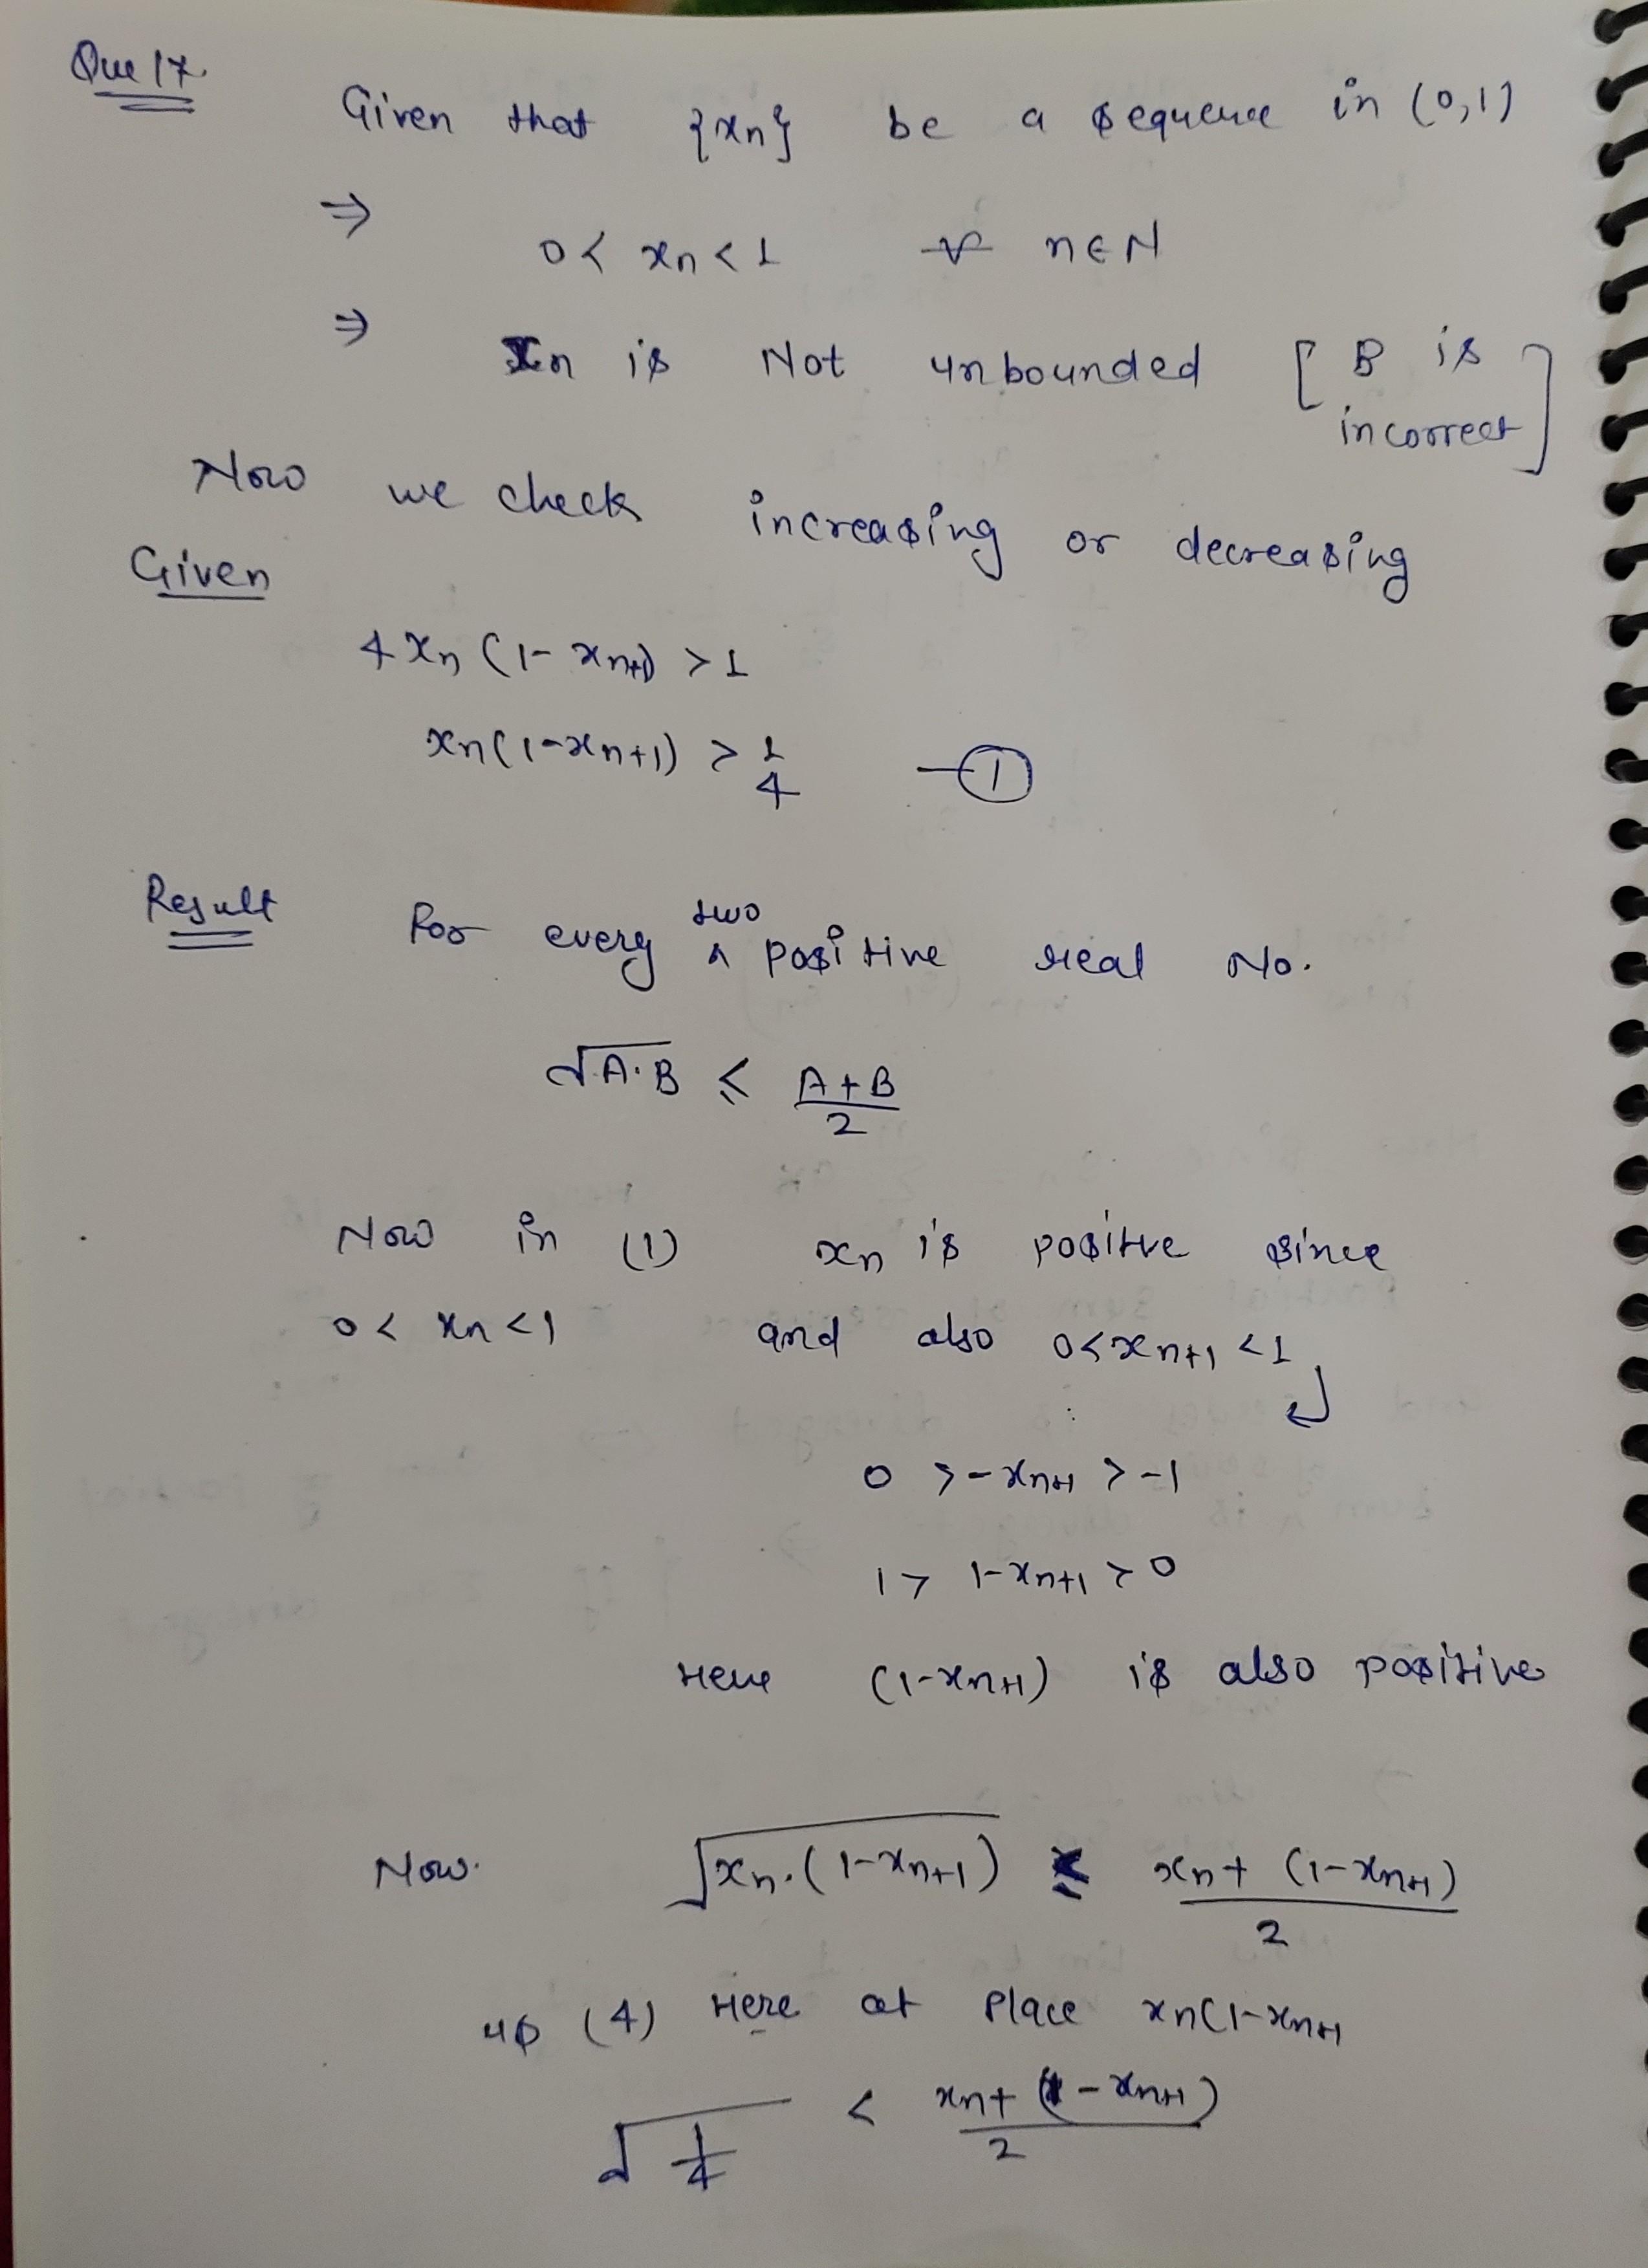 Que 17.
Given that {xn} be a sequence in (0,1)
⇒ 0 < xn < 1 ∀ n ∈ N
⇒ xn is Not unbounded [B is incorrect]
Now we check increasing or decreasing
Given
4xn (1 - xn+1) > 1
xn(1 - xn+1) > 1/4 — ①
Result For every two ^ positive real No.
√A.B ≤ A+B/2
Now in (1) xn is positive since
0 < xn < 1 and also 0 < xn+1 < 1
0 > -xn+1 > -1
1 > 1 - xn+1 > 0
Here (1-xn+1) is also positive
Now. √xn.(1-xn+1) ≤ xn + (1-xn+1)/2
(4) Here at place xn(1-xn+1
√1/4 < xn + (1 - xn+1)/2